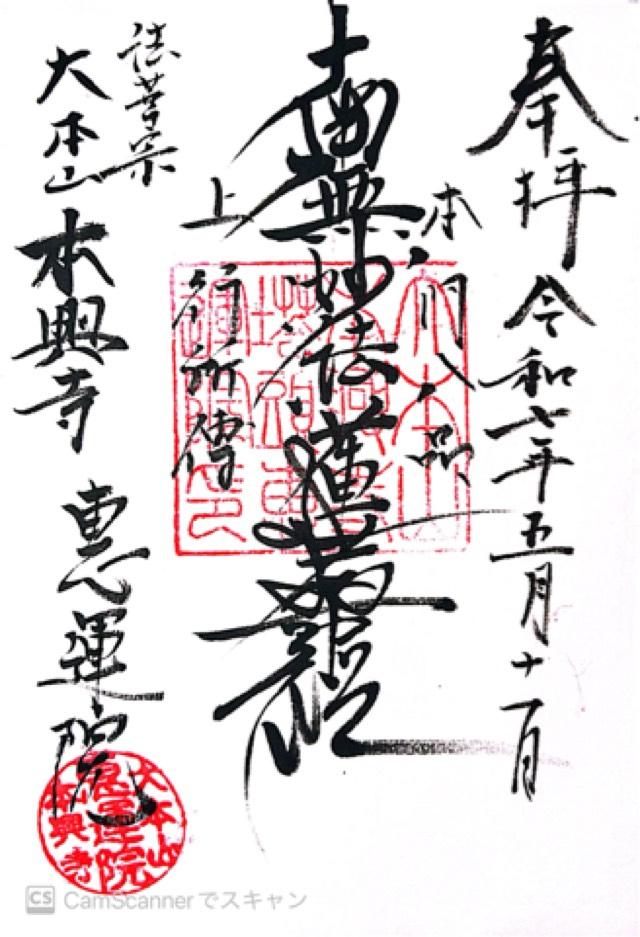 奉拝 令和七年五月十一日
本門八品
南無妙法蓮華経
上行所傳
法華宗
大本山 本興寺 恵運院
大本山
本興寺
塔頭恵
運院印
大本山
恵運院
本興寺
CS CamScannerでスキャン